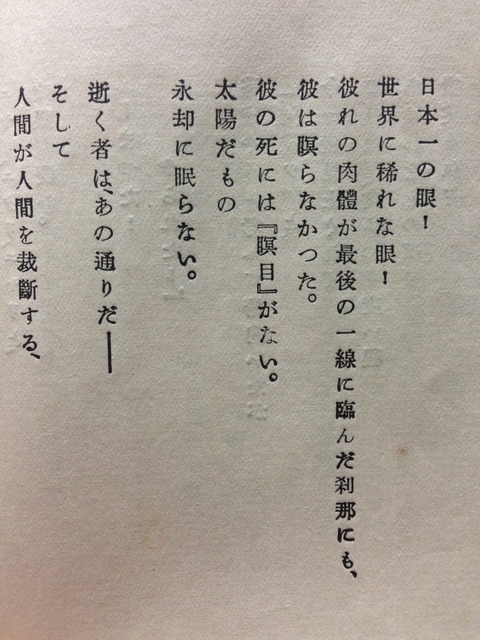 日本一の眼！
世界に稀れな眼！
彼れの肉體が最後の一線に臨んだ刹那にも、
彼は瞑らなかつた。
彼の死には『瞑目』がない。
太陽だもの
永却に眠らない。
逝く者は、あの通りだ――
そして
人間が人間を裁斷する、